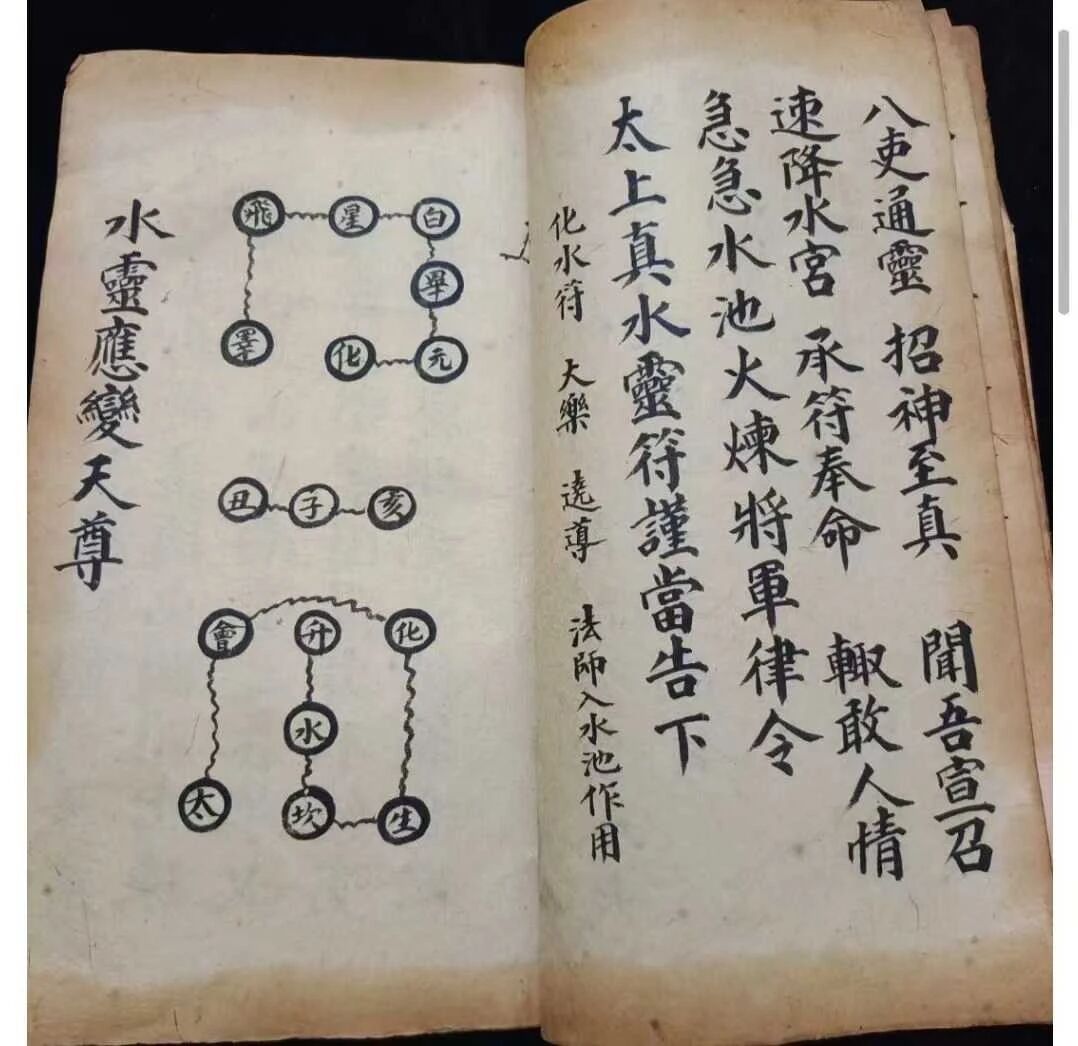 八吏通靈 招神至真 聞吾宣召
速降水宮 承符奉命 輙敢人情
急急水池火煉將軍律令
太上真水靈符謹當告下
化水符 大樂 遶導 法師入水池作用
飛 星 白
畢
睪 化 元
丑 子 亥
會 升 化
水
太 坎 生
水靈應變天尊